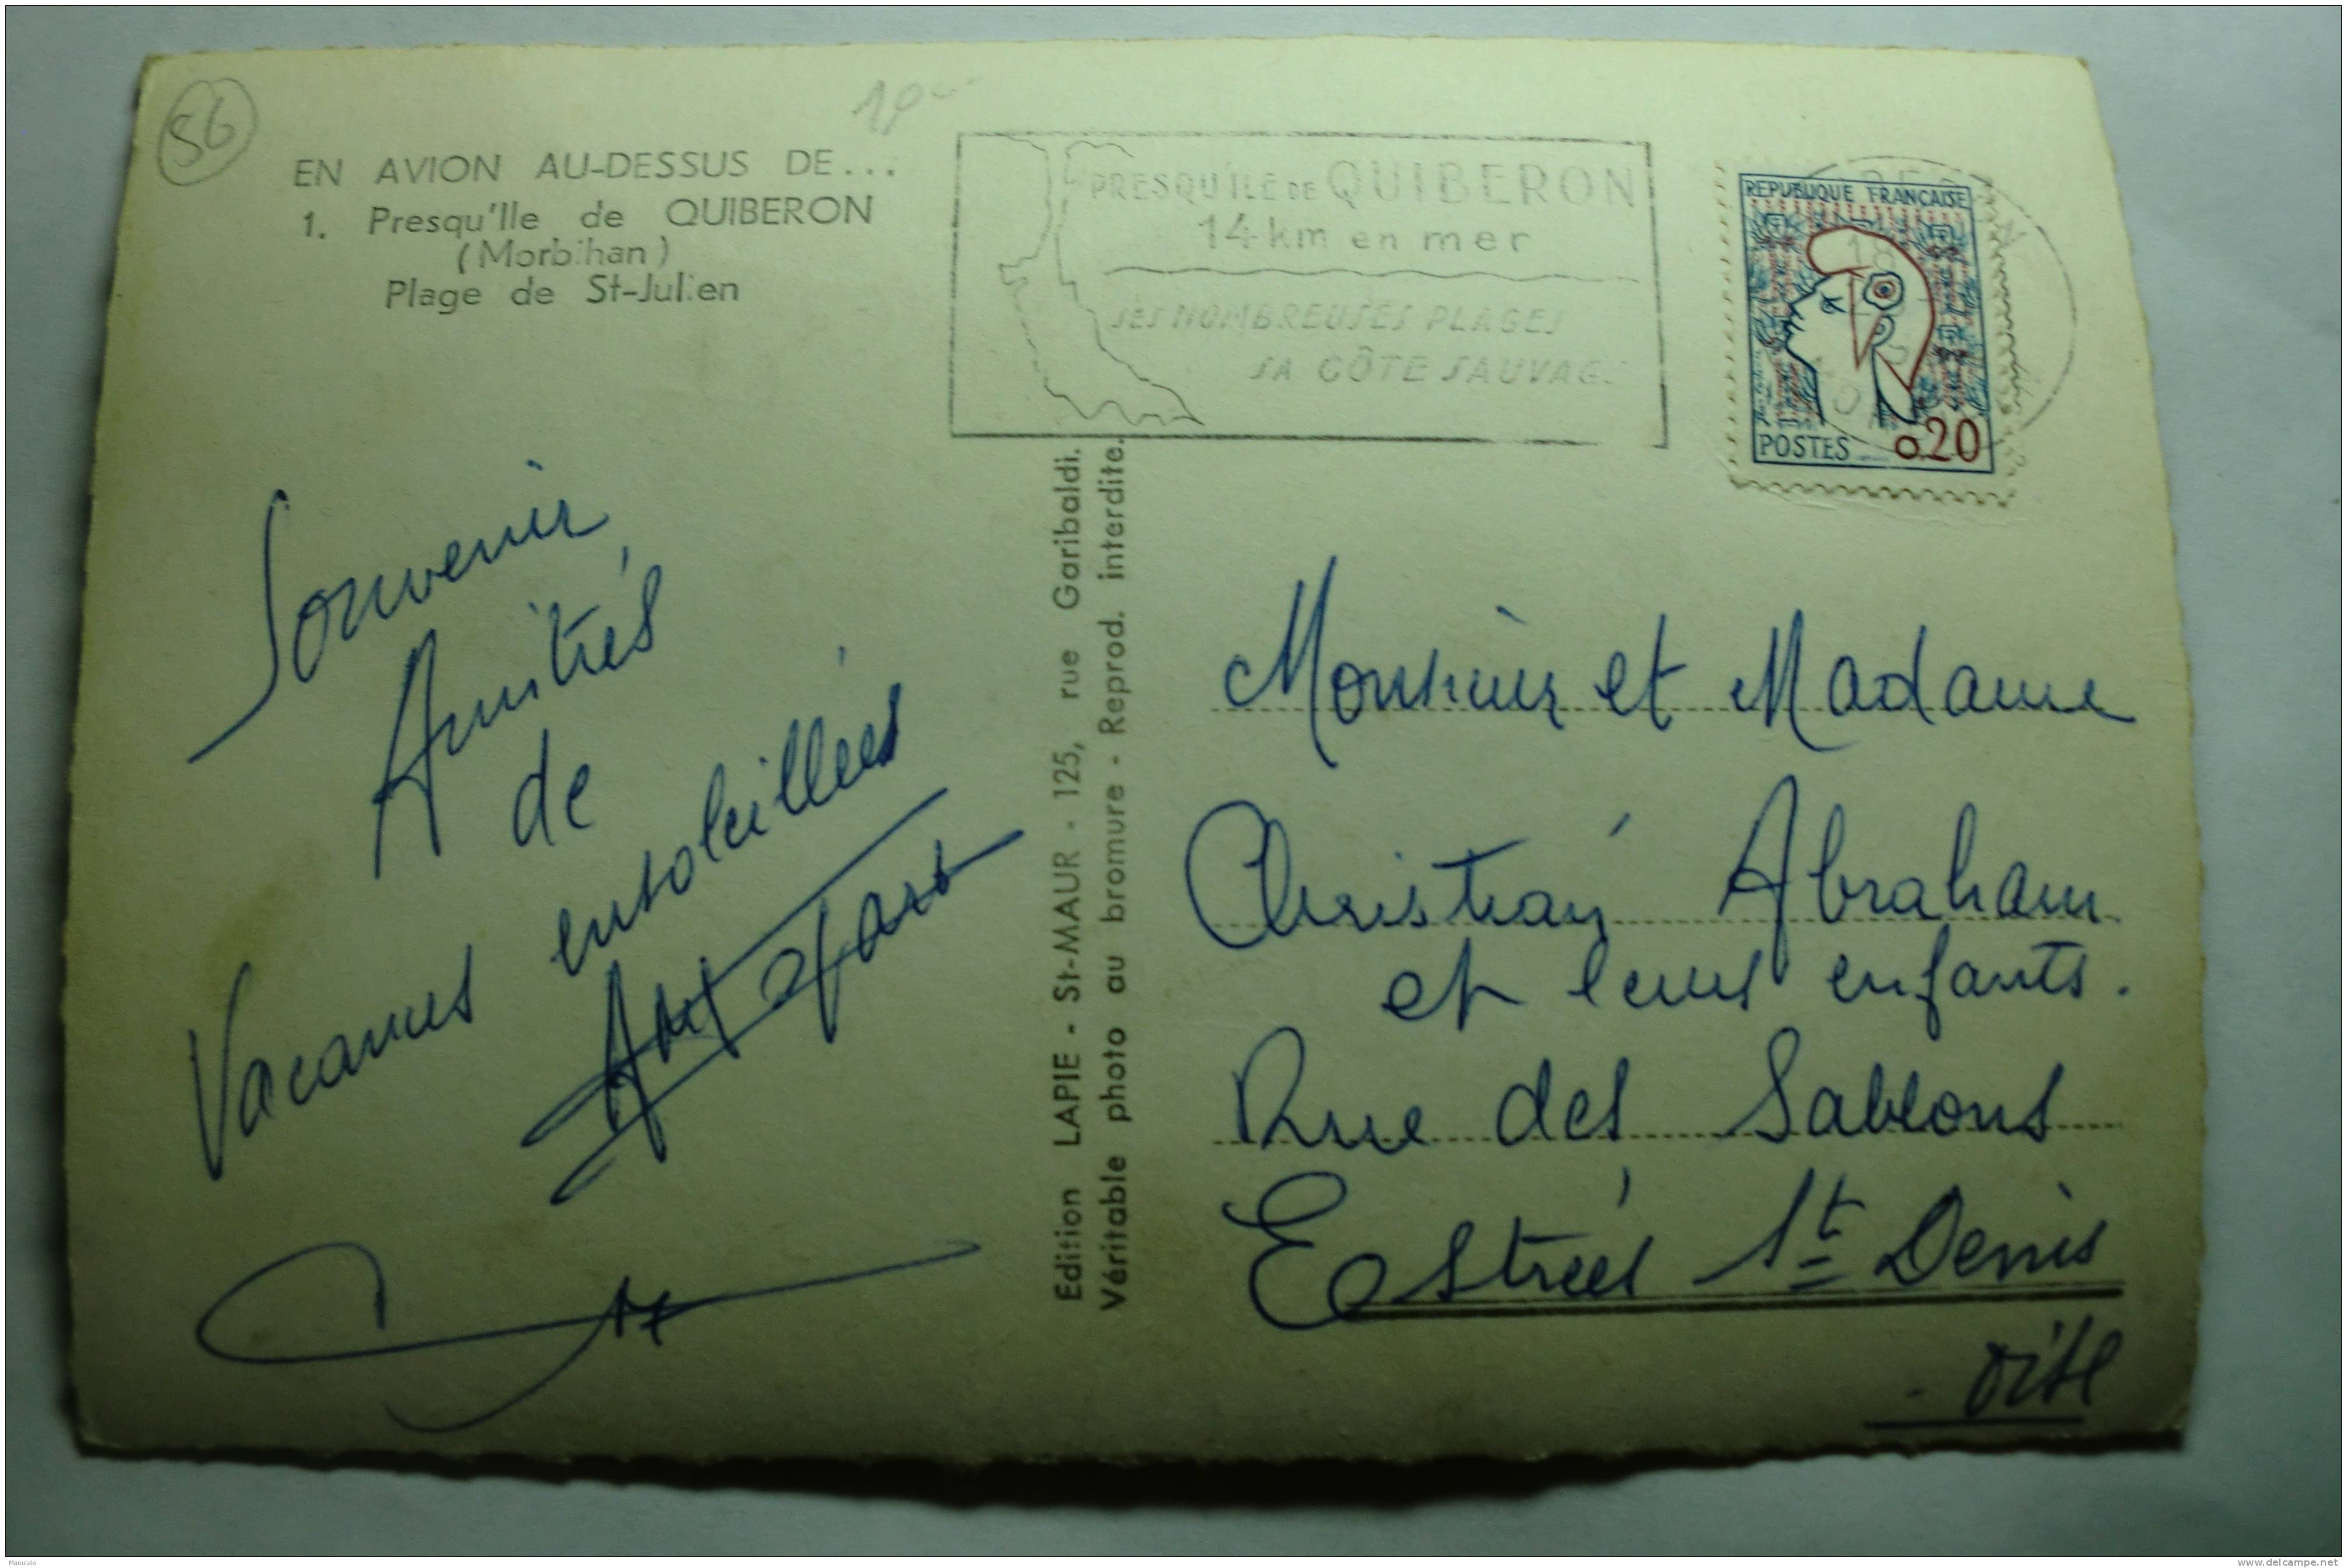 56
EN AVION AU-DESSUS DE...
1. Presqu'Ile de QUIBERON
(Morbihan)
Plage de St-Julien
PRESQU'ILE DE QUIBERON
14 km en mer
SES NOMBREUSES PLAGES
SA CÔTE SAUVAGE
REPUBLIQUE FRANÇAISE
POSTES 0,20
Souvenir
Amitiés
de
Vacances ensoleillées
Edition LAPIE - St-MAUR - 125, rue Garibaldi.
Véritable photo au bromure - Reprod. interdite.
Monsieur et Madame
Christian Abraham
et leurs enfants.
Rue des Sablons
Estrées St Denis
Oise
Manulalo
www.delcampe.net